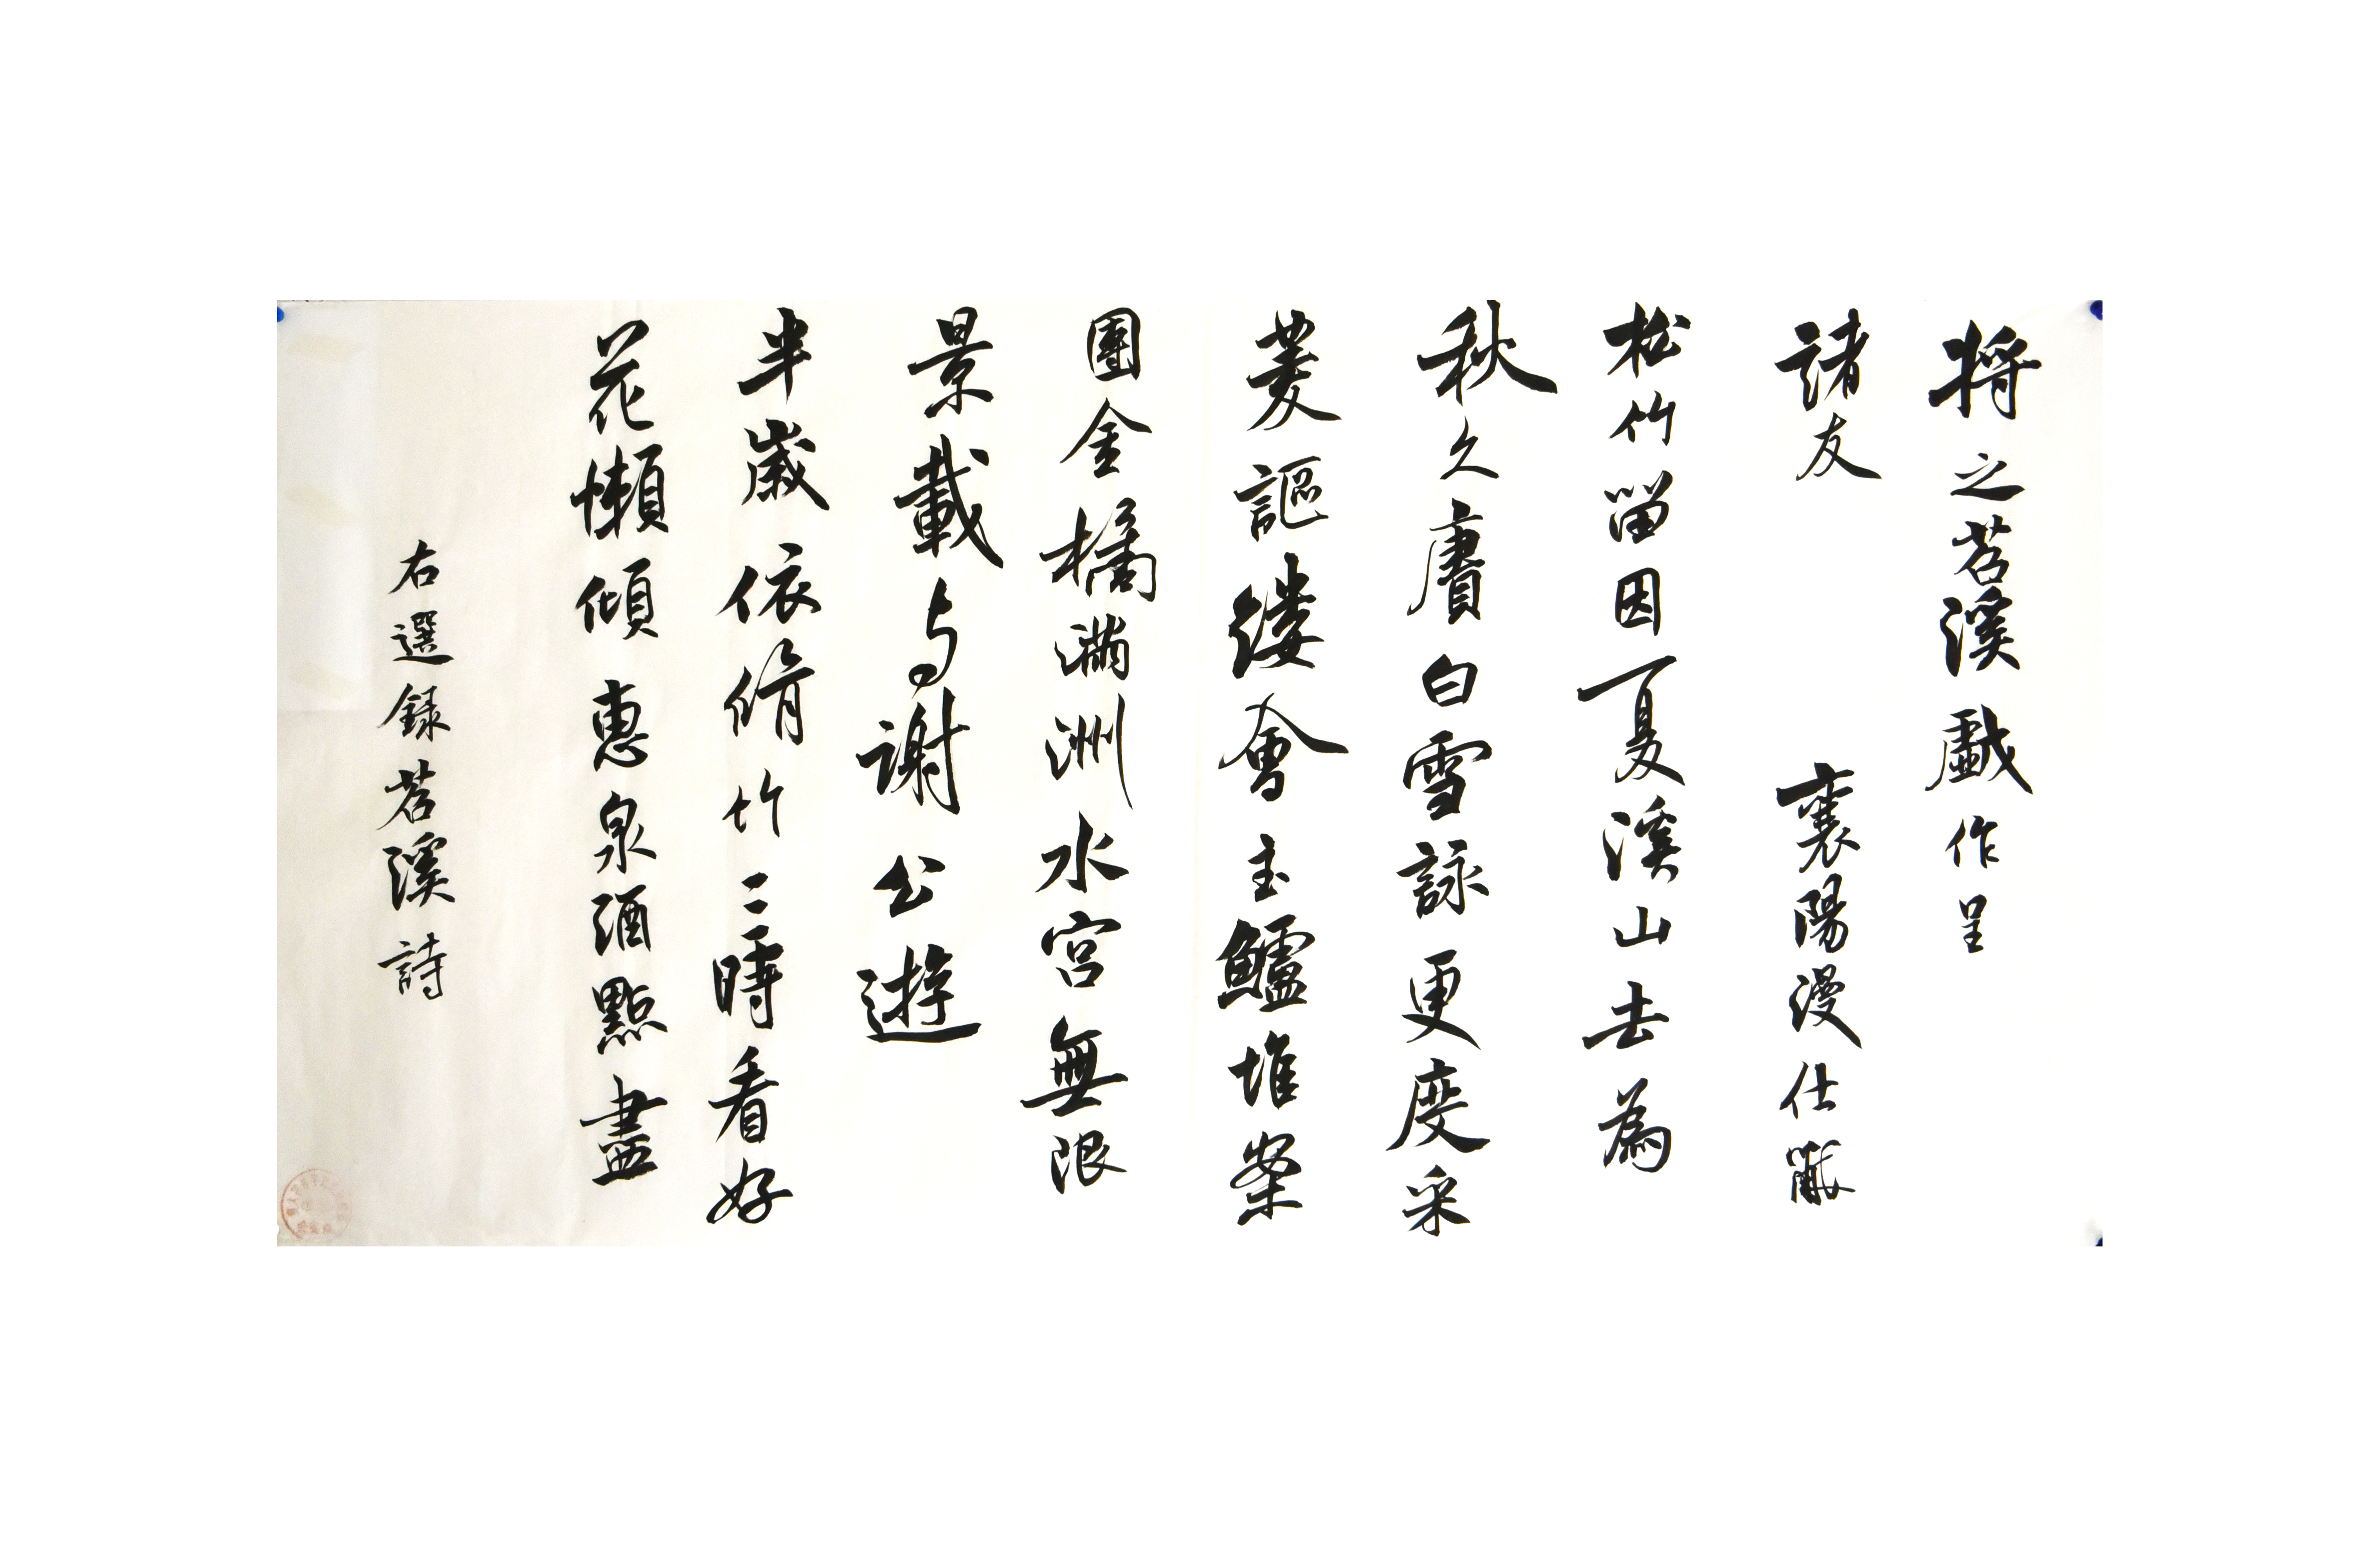 將之苕溪戲作呈
諸友
襄陽漫仕黻
松竹留因夏溪山去為
秋久賡白雪詠更度采
菱謳縷會玉鱸堆案
團金橘滿洲水宮無限
景載与謝公遊
半歲依脩竹三時看好
花懶傾惠泉酒點盡
右選録苕溪詩